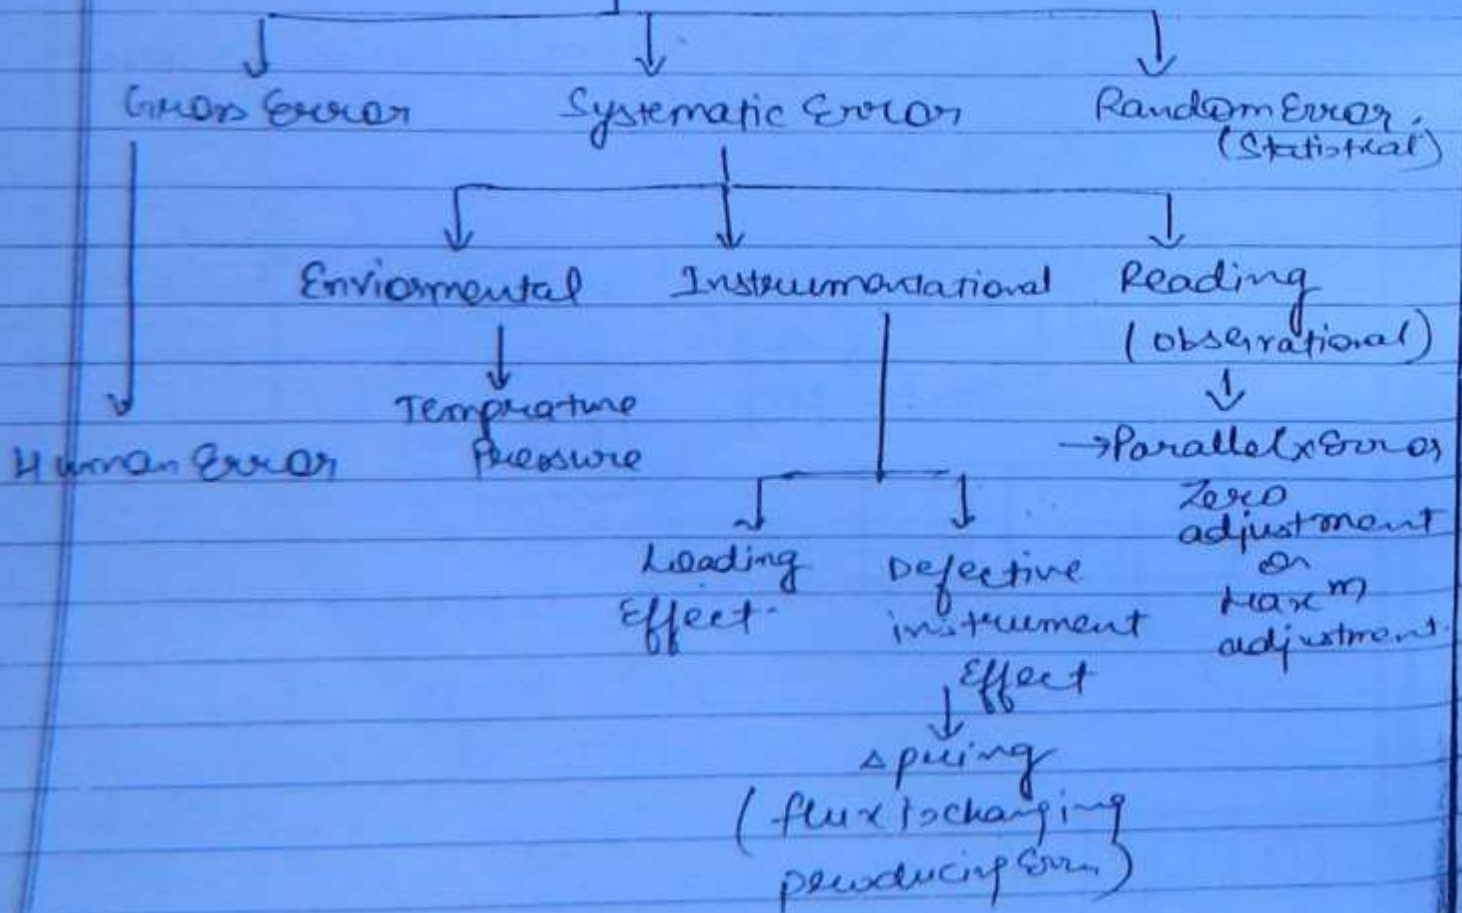 Gross Error Systematic Error Random Error.
(Statistical)
Enviormental Instrumentational Reading
(Observational)
Temprature
Pressure
Human Error
→Parallelx Error
Zero
adjustment
or
Maxm
adjustment.
Loading
Effect.
Defective
instrument
Effect
spring
(flux is changing
producing Error)